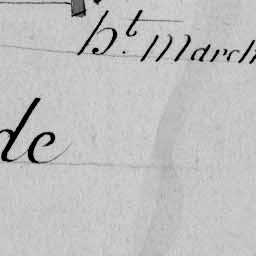 ht. March
de